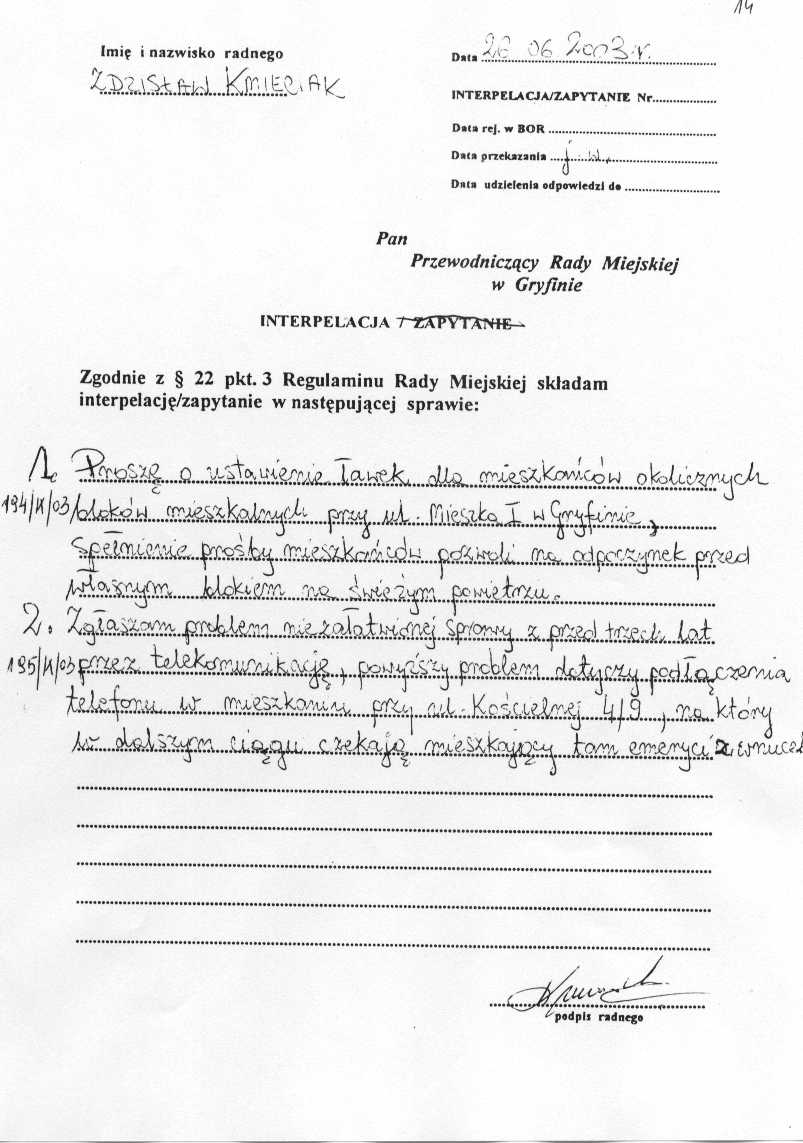 14
Imię i nazwisko radnego
ZDZISŁAW KMIECIAK
Data 26 06 2003 r.
INTERPELACJA/ZAPYTANIE Nr
Data rej. w BOR
Data przekazania j.w.
Data udzielenia odpowiedzi do
Pan
Przewodniczący Rady Miejskiej
w Gryfinie
INTERPELACJA / ZAPYTANIE
Zgodnie z § 22 pkt. 3 Regulaminu Rady Miejskiej składam
interpelację/zapytanie w następującej sprawie:
1. Proszę o ustawienie ławek dla mieszkańców okolicznych
194/IX/03/ bloków mieszkalnych przy ul. Mieszka I w Gryfinie,
spełnienie prośby mieszkańców pozwoli na odpoczynek przed
własnym blokiem na świeżym powietrzu.
2. Zgłaszam problem niezałatwionej sprawy z przed trzech lat
195/IX/03 przez telekomunikację, powyższy problem dotyczy podłączenia
telefonu w mieszkaniu przy ul. Kościelnej 4/9, na który
w dalszym ciągu czekają mieszkający tam emeryci z
podpis radnego